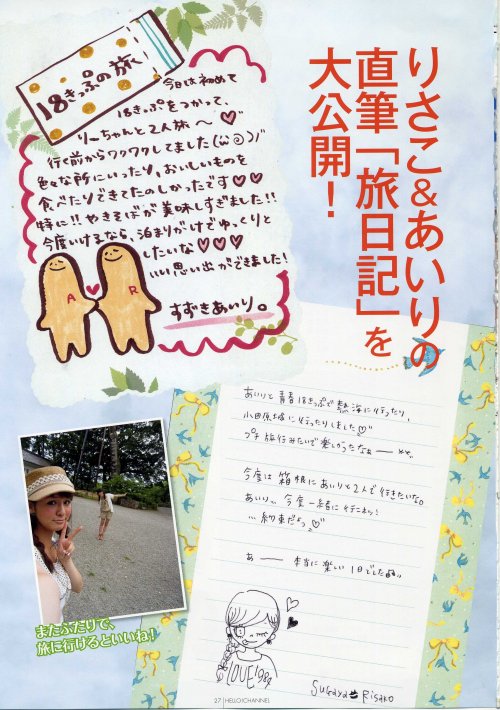 りさこ&あいりの
直筆「旅日記」を
大公開!
18きっぷの旅
今日は初めて
18きっぷをつかって、
りーちゃんと2人旅〜♡
行く前からワクワクしてました
色々な所にいったり、おいしいものを
食べたりできてたのしかったです♡♡
特に!!やきそばが美味しすぎました!!
今度いけるなら、泊まりがけでゆっくりと
したいな♡♡♡
いい思い出ができました!
A ♥ R
すずきあいり。
あいりと青春18きっぷで熱海に行ったり、
小田原城に行ったりしました♡
プチ旅行みたいで楽しかったなぁー
今度は箱根にあいりと2人で行きたいな。
あいり、今度一緒に行こネッ!
…約束だょっ♡
あー 本当に楽しい1日でした
LOVE
Sugaya Risako
またふたりで、
旅に行けるといいね!
27 | HELLO! CHANNEL